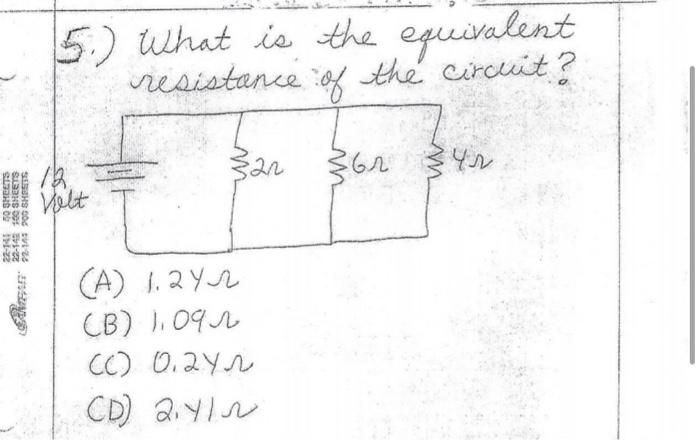 5.) What is the equivalent
resistance of the circuit?
12
Volt
2Ω
6Ω
4Ω
(A) 1.24Ω
(B) 1.09Ω
(C) 0.24Ω
(D) 2.41Ω
22-141 50 SHEETS
22-142 100 SHEETS
22-144 200 SHEETS